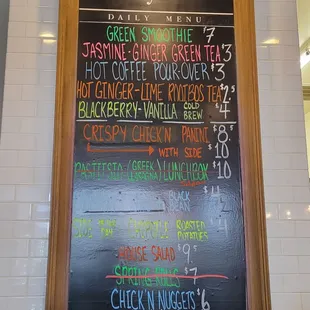 DAILY MENU
GREEN SMOOTHIE $7
JASMINE-GINGER GREEN TEA $3
HOT COFFEE POUR-OVER $3
HOT GINGER-LIME ROOIBOS TEA $2
BLACKBERRY-VANILLA COLD BREW $4
CRISPY CHICK'N PANINI $8
WITH SIDE $10
LUNCHBOX $10
BLACK $4
ROASTED POTATOES $4
HOUSE SALAD $9
SPRING ROLLS $7
CHICK'N NUGGETS $6